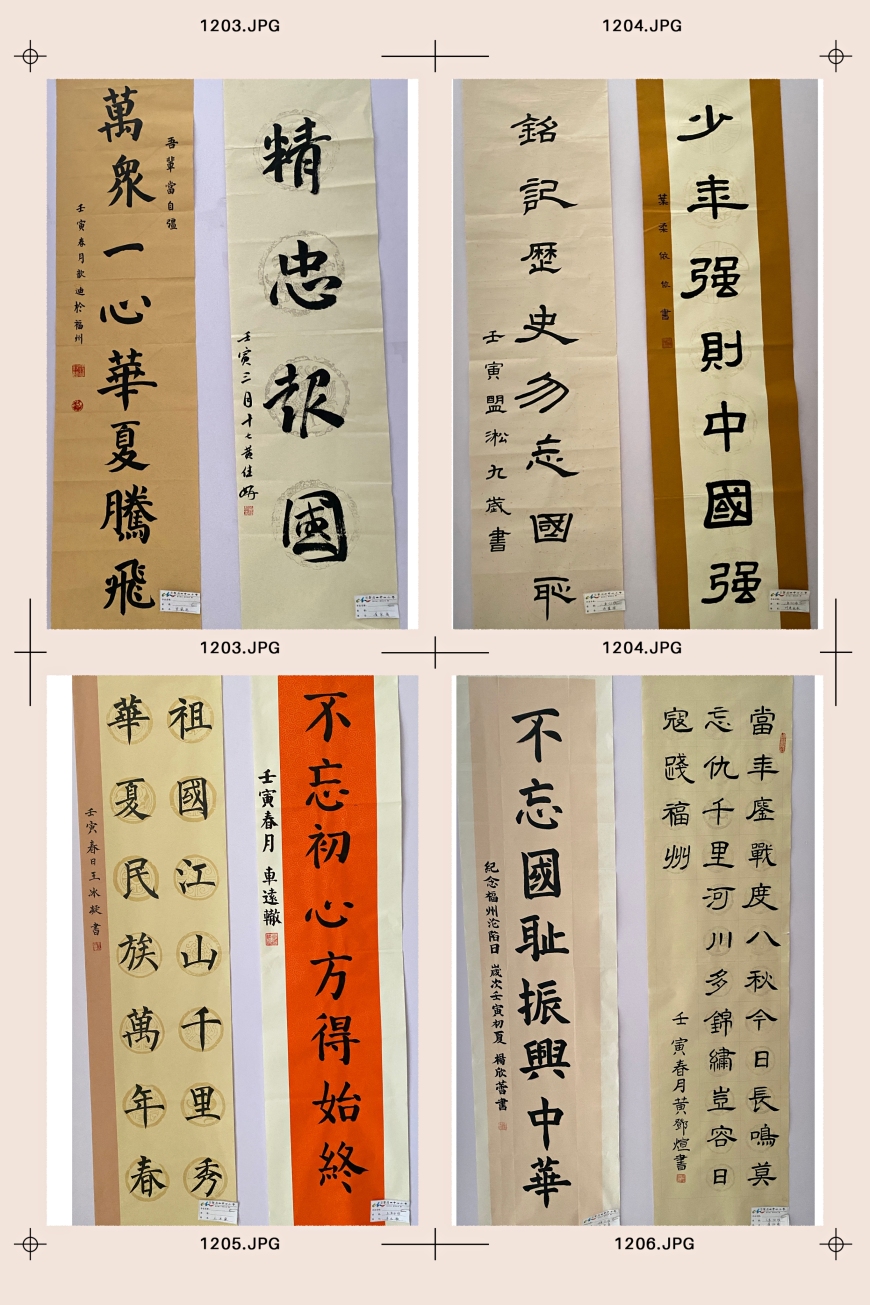 1203.JPG
1204.JPG
吾輩當自強
萬眾一心華夏騰飛
壬寅春月歆迪於福州
精忠報國
壬寅三月十七黄佳妤
銘記歷史勿忘國恥
壬寅盟淞九歲書
少年强則中國强
葉柔依依書
1203.JPG
1204.JPG
祖國江山千里秀
華夏民族萬年春
壬寅春日王冰凝書
不忘初心方得始終
壬寅春月 車遠轍
不忘國耻振興中華
紀念福州沦陷日 歲次壬寅初夏 楊欣蕾書
當年鏖戰度八秋今日長鳴莫
忘仇千里河川多錦繡豈容日
寇踐福州
壬寅春月黄鄧煊書
1205.JPG
1206.JPG